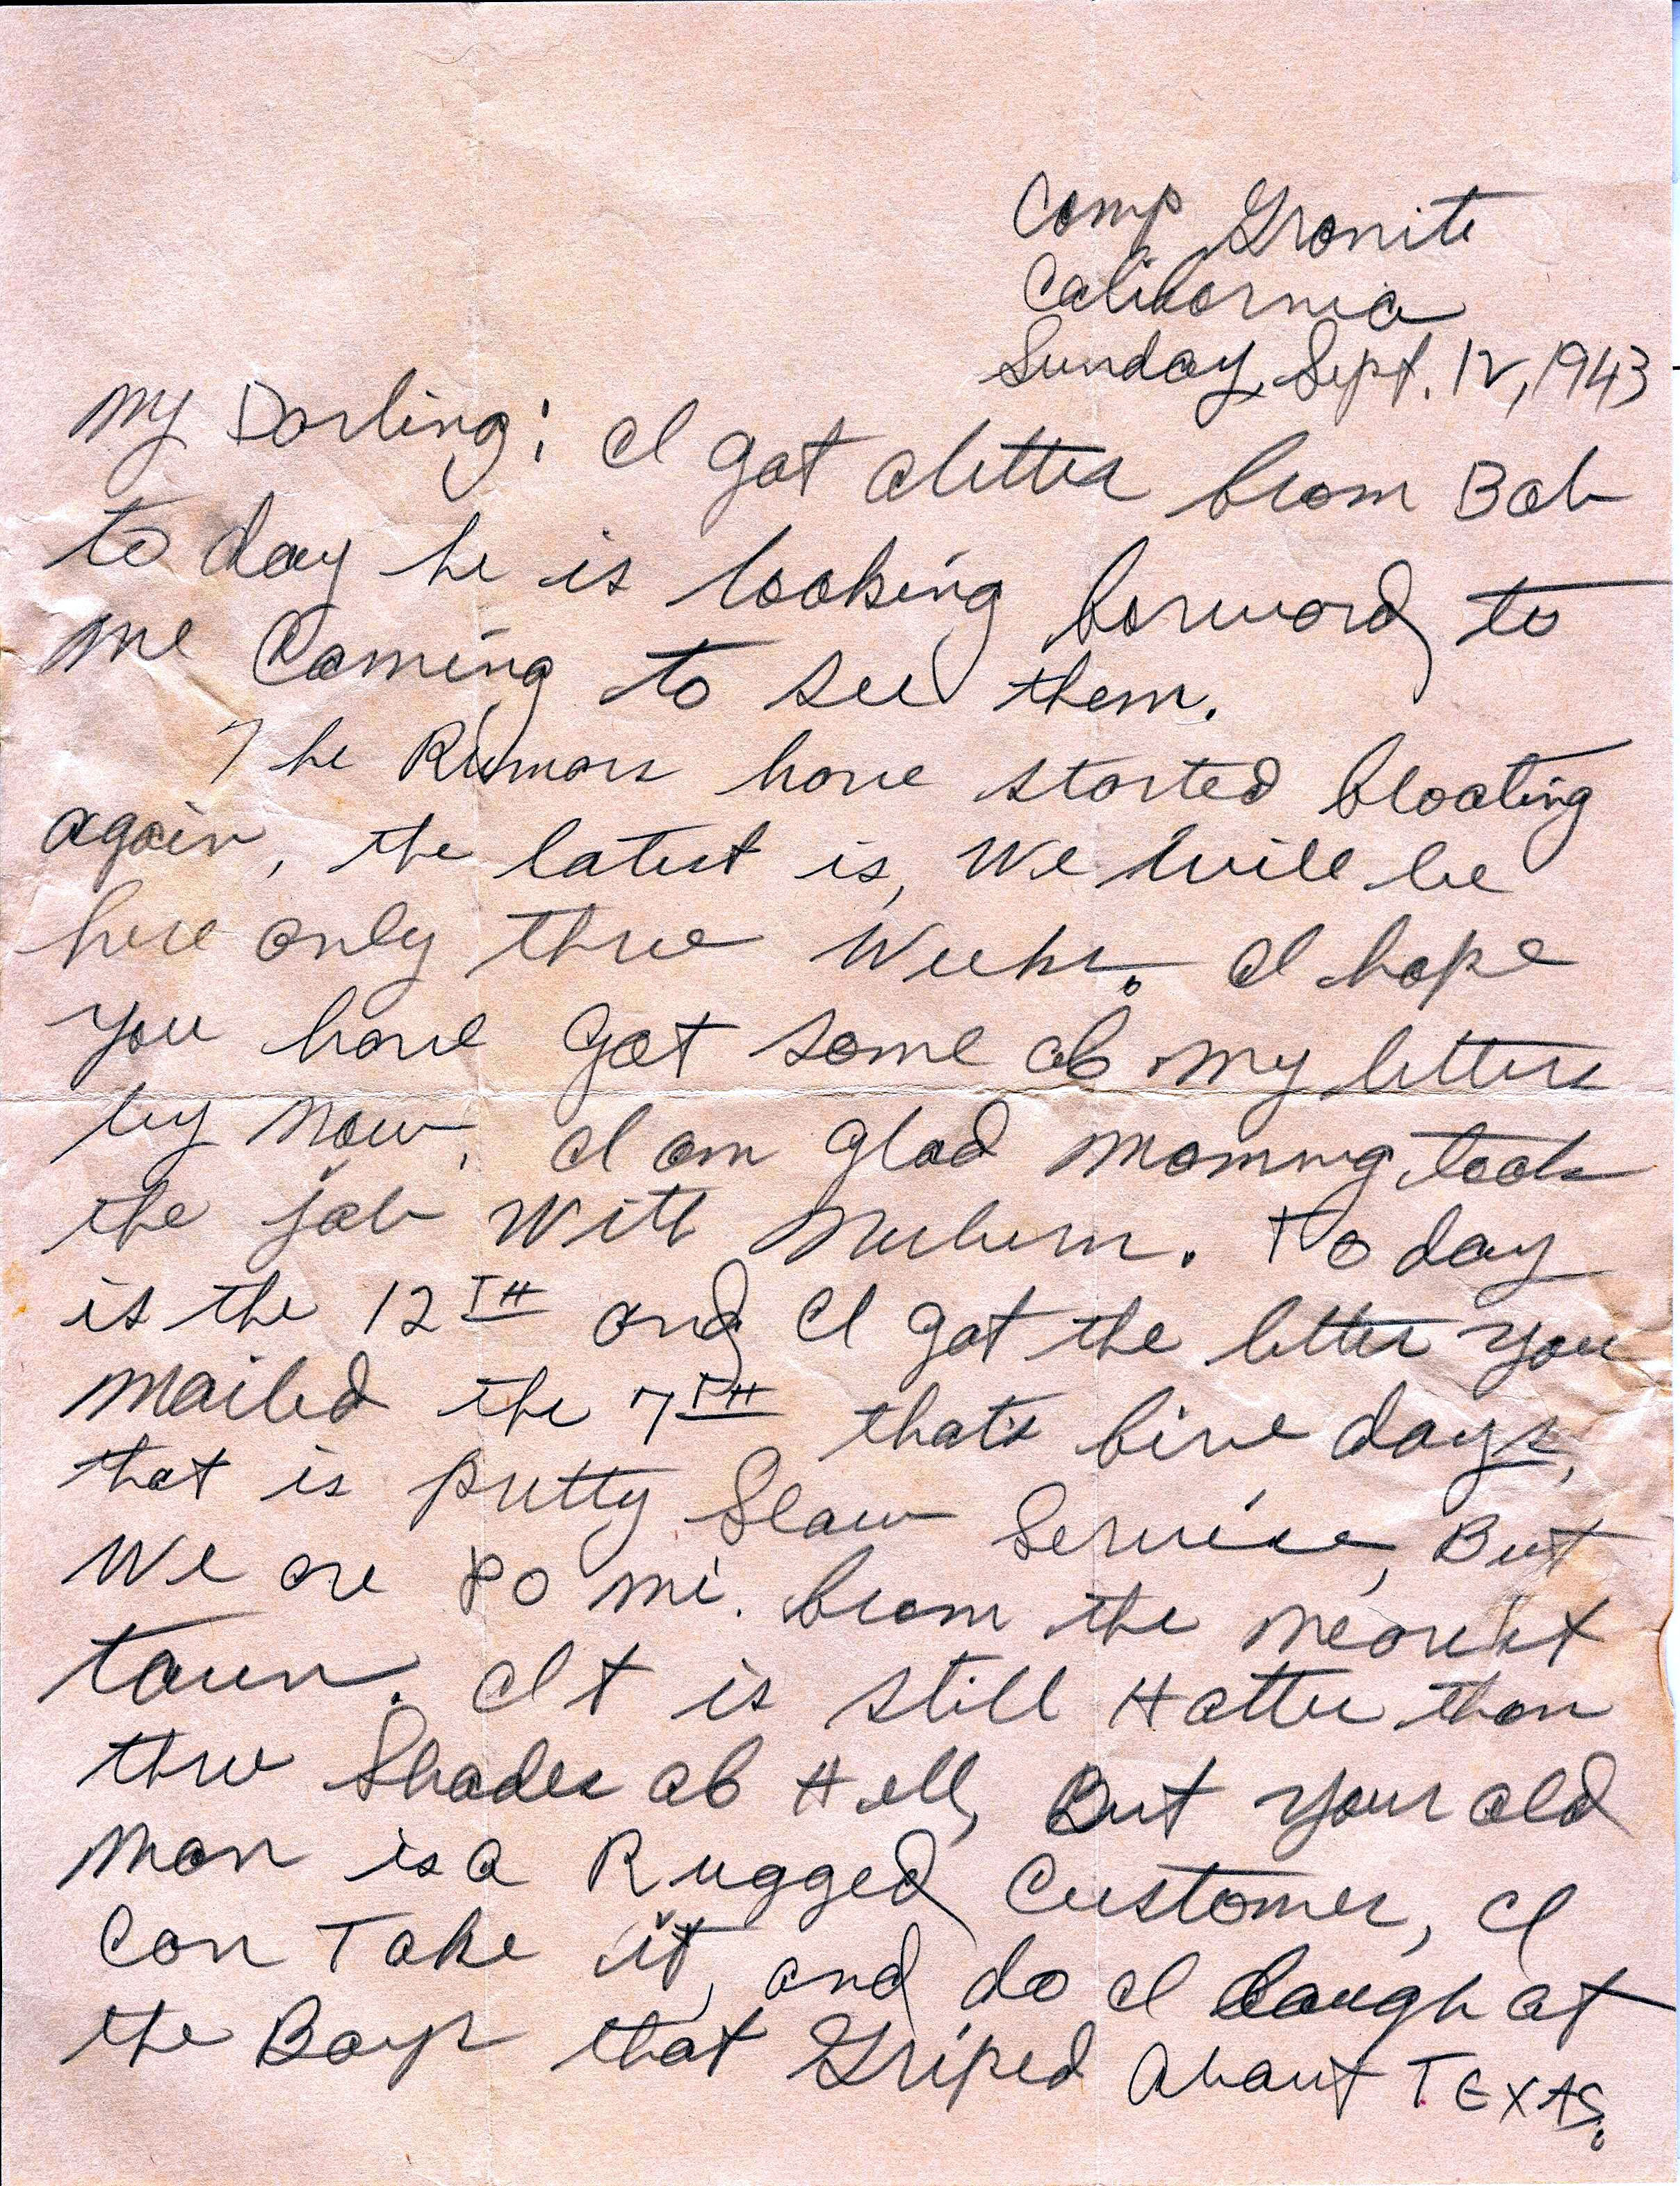 Camp Granite
California
Sunday, Sept. 12, 1943
My Darling: I got a letter from Bob
to day he is looking forward to
me Coming to see them.
The Rumors have started floating
again, the latest is, We will be
here only three Weeks. I hope
you have got some of my letters
by now. I am glad mommy took
the job with. Today
is the 12TH and I got the letter you
mailed the 7TH that's five days,
that is pretty Slow Service, But
We are 80 mi. from the nearest
town. It is still Hotter than
three Shades of Hell, But your old
man is a Rugged Customer, I
Can Take it, and do I laugh at
the Boys that Griped About TEXAS.